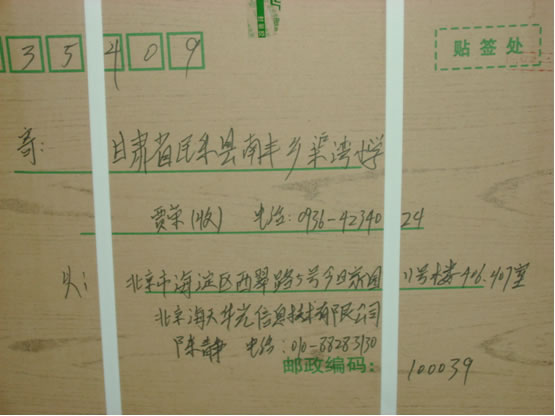 35409
贴签处
寄: 甘肃省民乐县南丰乡渠湾小学
贾荣(收) 电话:0936-4234024
从: 北京市海淀区西翠路5号今日家园11号楼406.407室
北京海天华光信息技术有限公司
陈静 电话:010-88283130
邮政编码: 100039